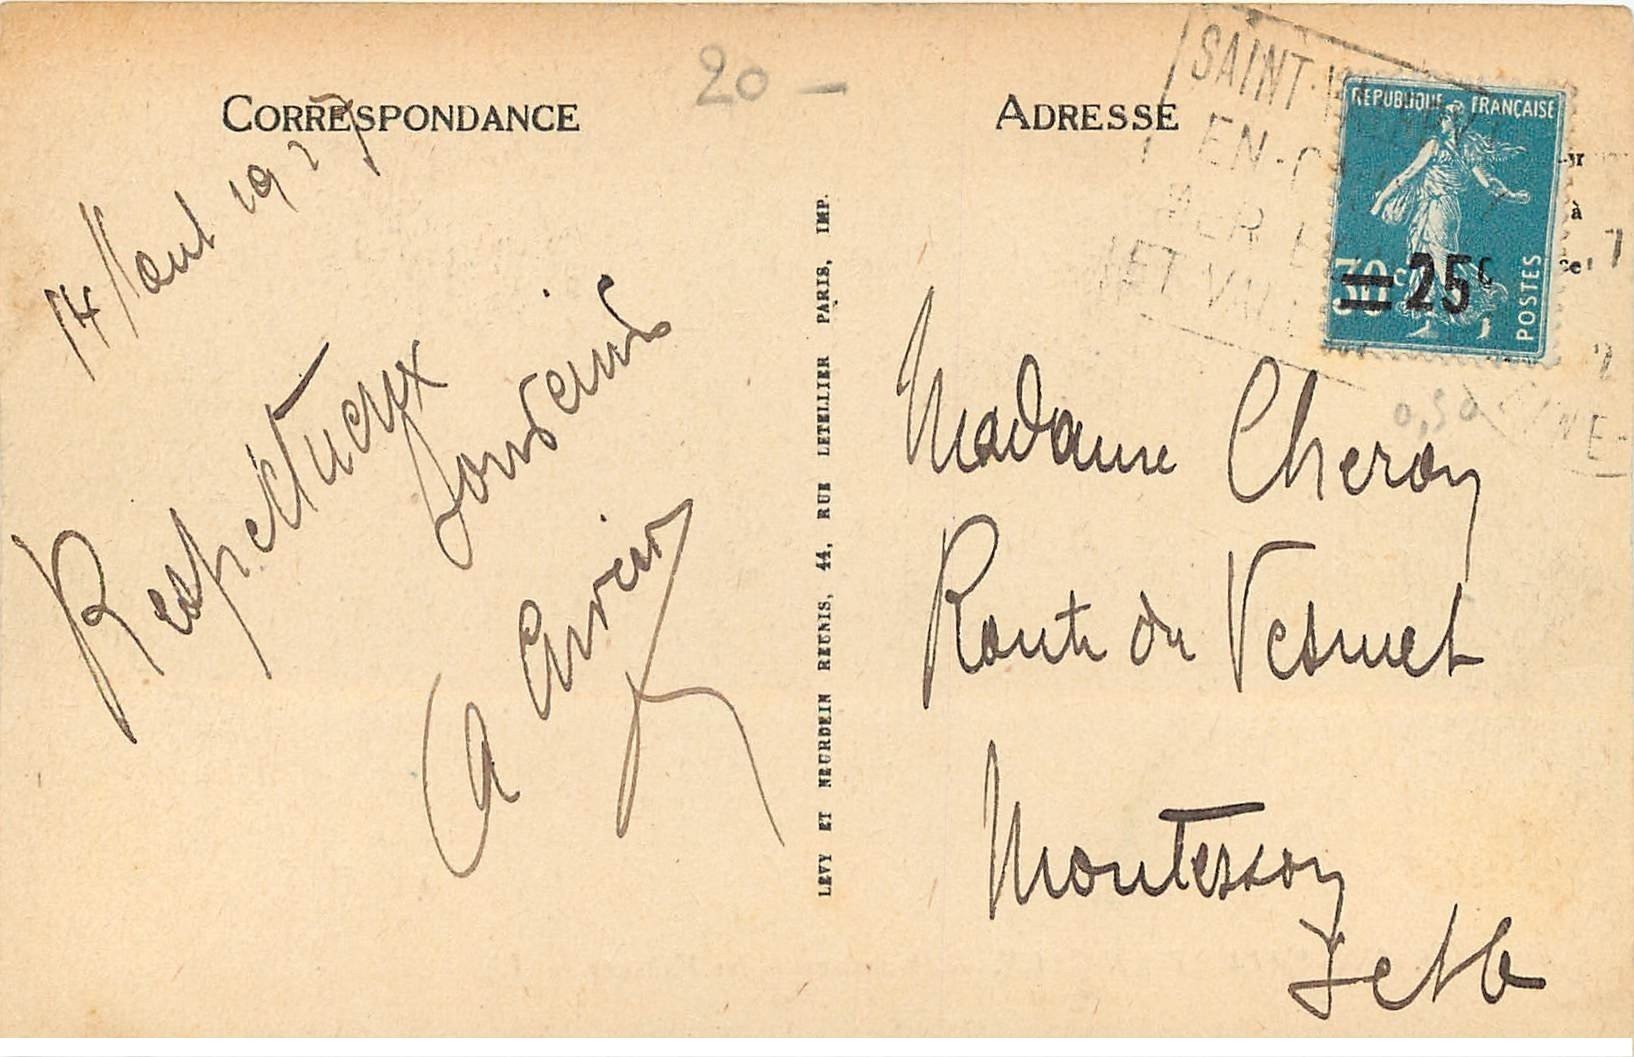 CORRESPONDANCE
20 -
14 Aout 1927
Respectueux
Souvenir
LEVY ET NEURDEIN REUNIS, 44, RUE LETELLIER PARIS, IMP.
ADRESSE
SAINT-
EN-
MER
ET VAL
REPUBLIQUE FRANÇAISE
30c 25c
POSTES
à
0,50
INE-
Madame Cheron
Route du Vesinet
Montesson
S et O